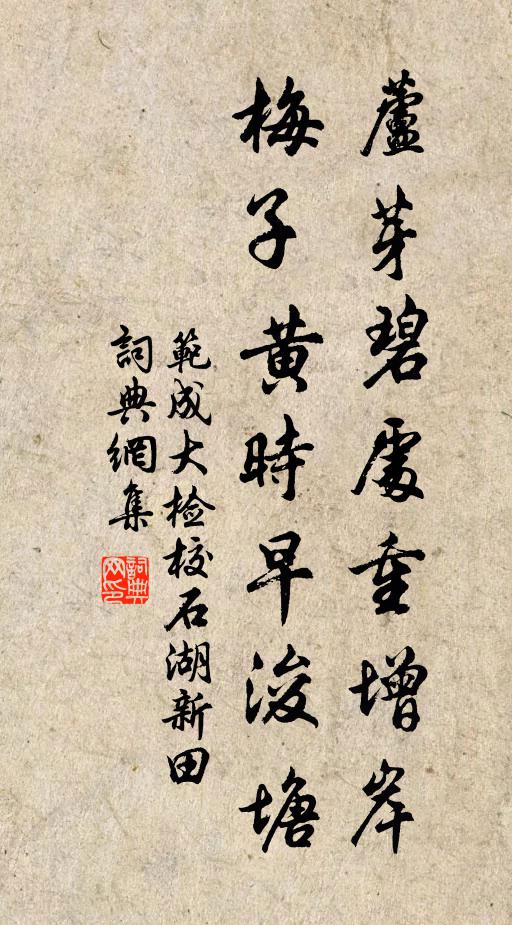 蘆芽碧處重增岸
梅子黃時早浚塘
範成大檢校石湖新田
詞典網集
詞典網印